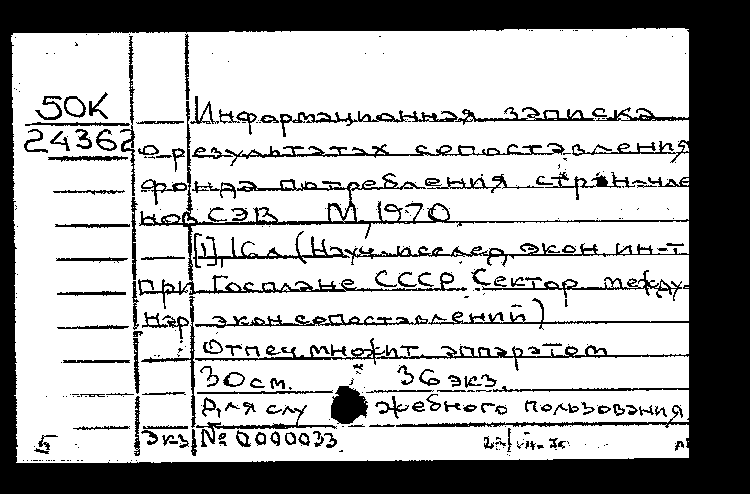 50К
24362
Информационная записка
о результатах сопоставления
фонда потребления стран-чле
нов СЭВ М, 1970.
[1], 16л (Науч.-исслед. экон. ин-т
при Госплане СССР. Сектор между-
нар экон сопоставлений)
Отпеч. множит. аппаратом
30 см. 36 экз.
Для слу жебного пользования
5 Экз № 0000033